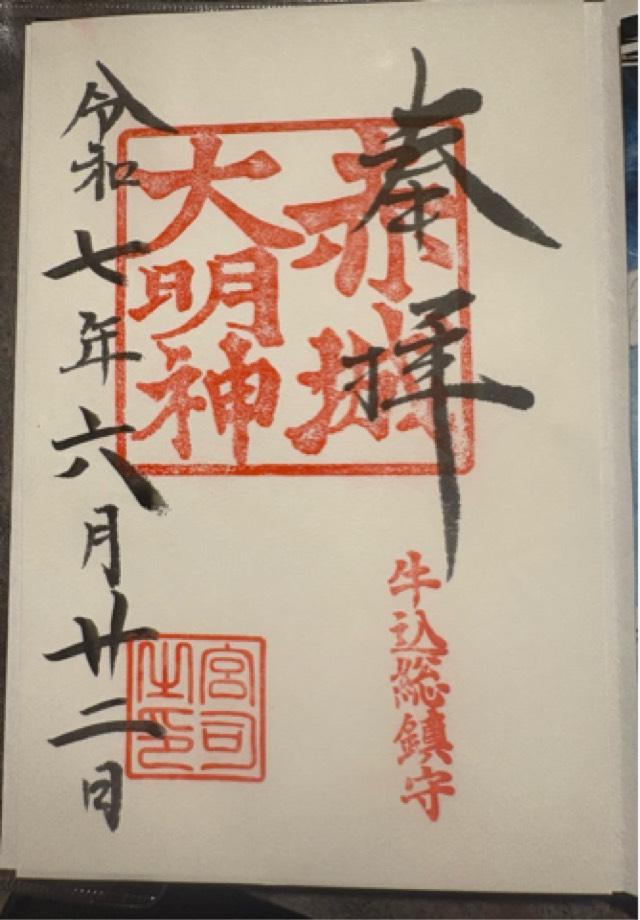 奉拝
赤城
大明神
牛込総鎮守
令和七年六月廿二日
宮司
之印